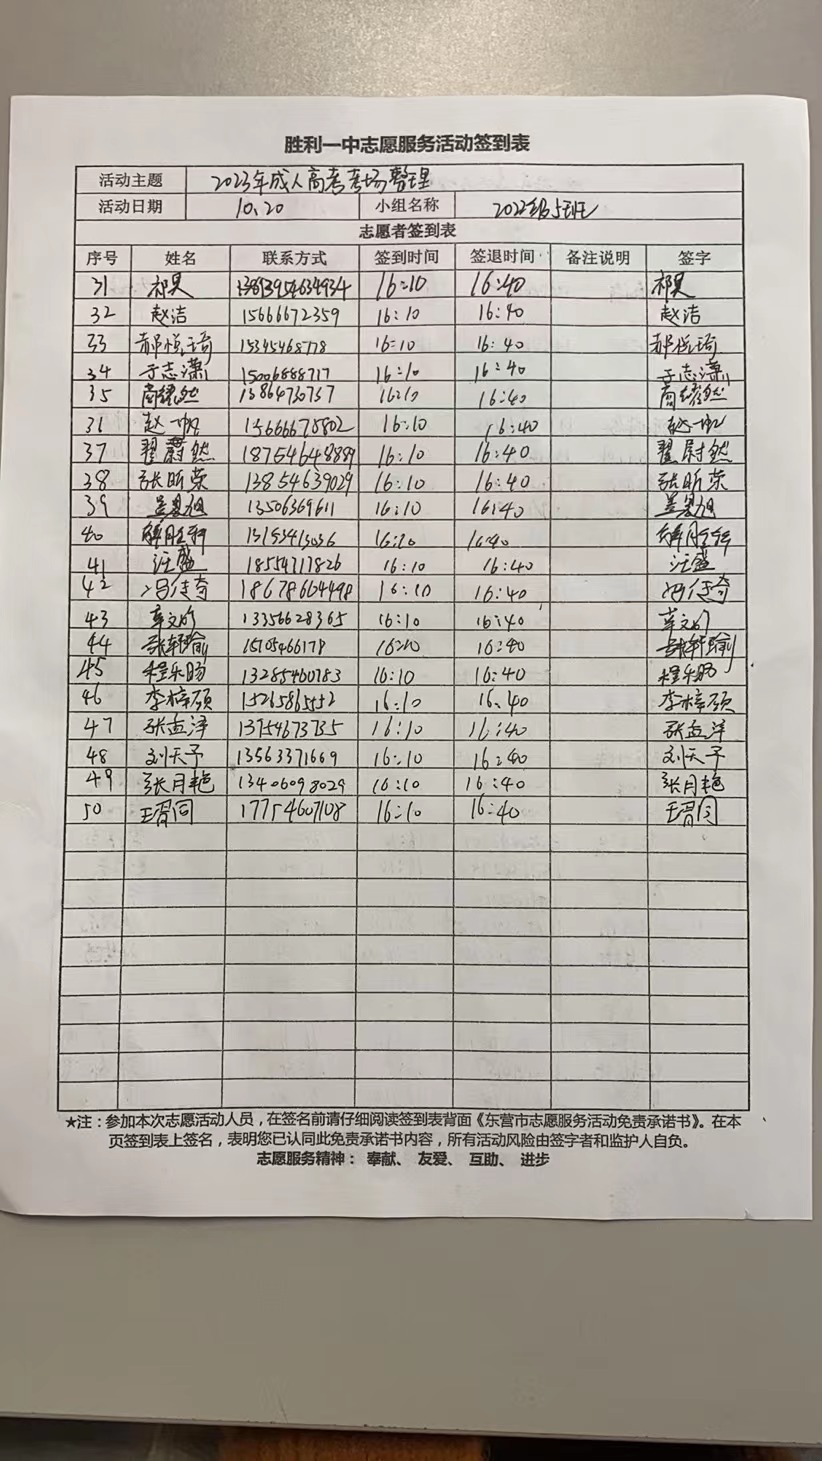 胜利一中志愿服务活动签到表
活动主题 2023年成人高考考场整理
活动日期 10.20 小组名称 2022级5班
志愿者签到表
序号 姓名 联系方式 签到时间 签退时间 备注说明 签字
31 祁昊 16:10 16:40 祁昊
32 赵洁 15666672359 16:10 16:40 赵洁
33 郝悦琦 15345468778 16:10 16:40 郝悦琦
34 于志潇 15006888717 16:10 16:40 于志潇
35 商绪然 13864730757 16:10 16:40 商绪然
31 赵一帆 15666678802 16:10 16:40 赵一帆
37 翟蔚然 18754648889 16:10 16:40 翟尉然
38 张昕荣 13854639029 16:10 16:40 张昕荣
39 13506369611 16:10 16:40
40 16:10 16:40
41 汪盛 18554717826 16:10 16:40 汪盛
42 冯传奇 18678664498 16:10 16:40 冯传奇
43 13356628365 16:10 16:40
44 张轩瑜 16:10 16:40 张轩瑜
45 程乐旸 13285460783 16:10 16:40 程乐旸
46 李梓硕 15265865552 16:10 16:40 李梓硕
47 张孟泽 13754673735 16:10 16:40 张孟泽
48 刘天予 13563371669 16:10 16:40 刘天予
49 张月艳 13406098029 16:10 16:40 张月艳
50 王胥同 17754607108 16:10 16:40 王胥同
★注：参加本次志愿活动人员，在签名前请仔细阅读签到表背面《东营市志愿服务活动免责承诺书》。在本
页签到表上签名，表明您已认同此免责承诺书内容，所有活动风险由签字者和监护人自负。
志愿服务精神： 奉献、 友爱、 互助、 进步